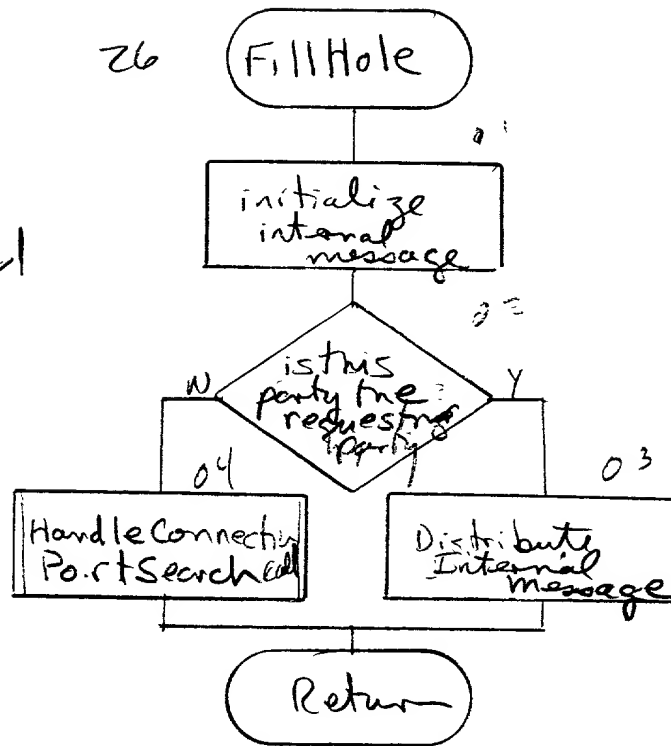 26
FillHole
01
initialize
internal
message
02
is this
party the
requesting
party
N
Y
04
03
Handle Connection
Port Search call
Distribute
Internal
Message
Return